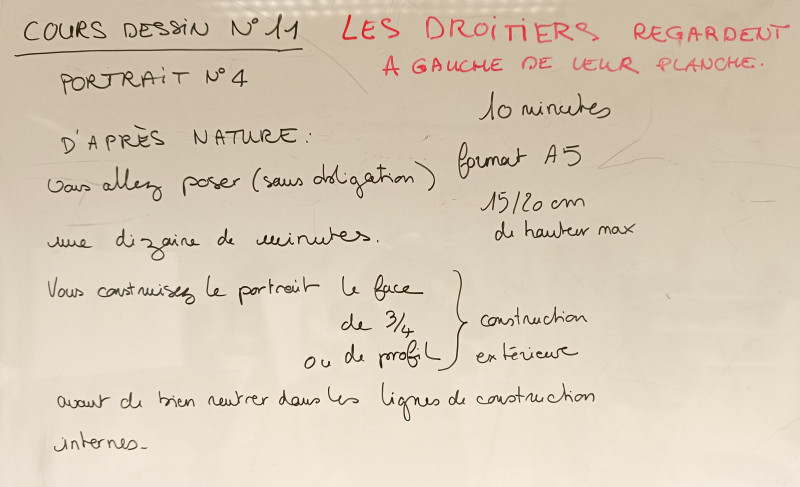 COURS DESSIN N°11
LES DROITIERS REGARDENT
A GAUCHE DE LEUR PLANCHE.
PORTRAIT N°4
10 minutes
D'APRÈS NATURE :
format A5
Vous allez poser (sans obligation)
15/20 cm
de hauteur max
une dizaine de minutes.
Vous construisez le portrait le face
de 3/4
ou de profil
construction
extérieure
avant de bien rentrer dans les lignes de construction
internes-